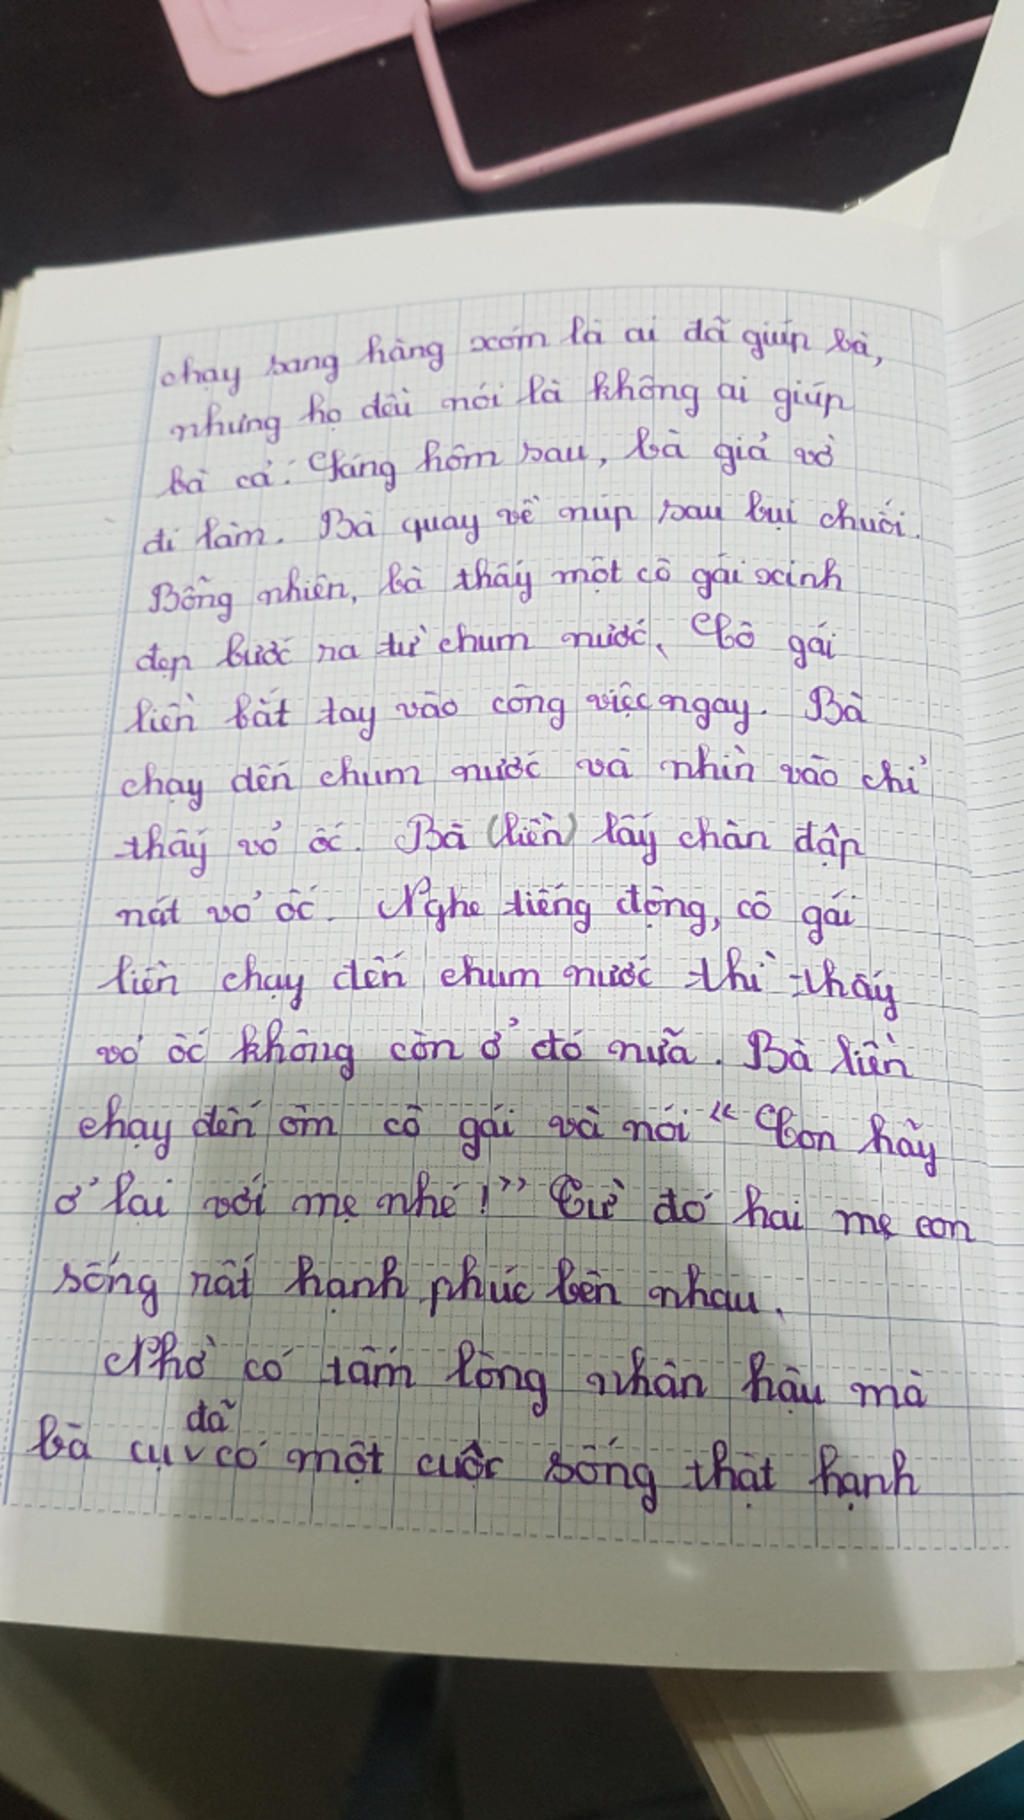 chạy sang hàng xóm là ai đã giúp bà,
nhưng họ đều nói là không ai giúp
bà cả. Sáng hôm sau, bà giả vờ
đi làm. Bà quay về núp sau bụi chuối.
Bỗng nhiên, bà thấy một cô gái xinh
đẹp bước ra từ chum nước. Cô gái
liền bắt tay vào công việc ngay. Bà
chạy đến chum nước và nhìn vào chỉ
thấy vỏ ốc. Bà (liền) lấy chân đập
nát vỏ ốc. Nghe tiếng động, cô gái
liền chạy đến chum nước thì thấy
vỏ ốc không còn ở đó nữa. Bà liền
chạy đến ôm cô gái và nói "Con hãy
ở lại với mẹ nhé!" Từ đó hai mẹ con
sống rất hạnh phúc bên nhau.
Nhờ có tấm lòng nhân hậu mà
bà cụ đã có một cuộc sống thật hạnh